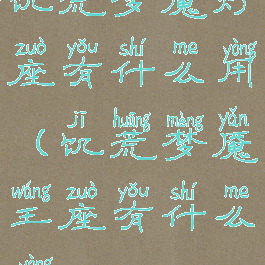 饥荒梦魇灯
zuò yǒu shí me yòng
座有什么用
jī huāng mèng yǎn
（饥荒梦魇
wáng zuò yǒu shí me
王座有什么
yòng